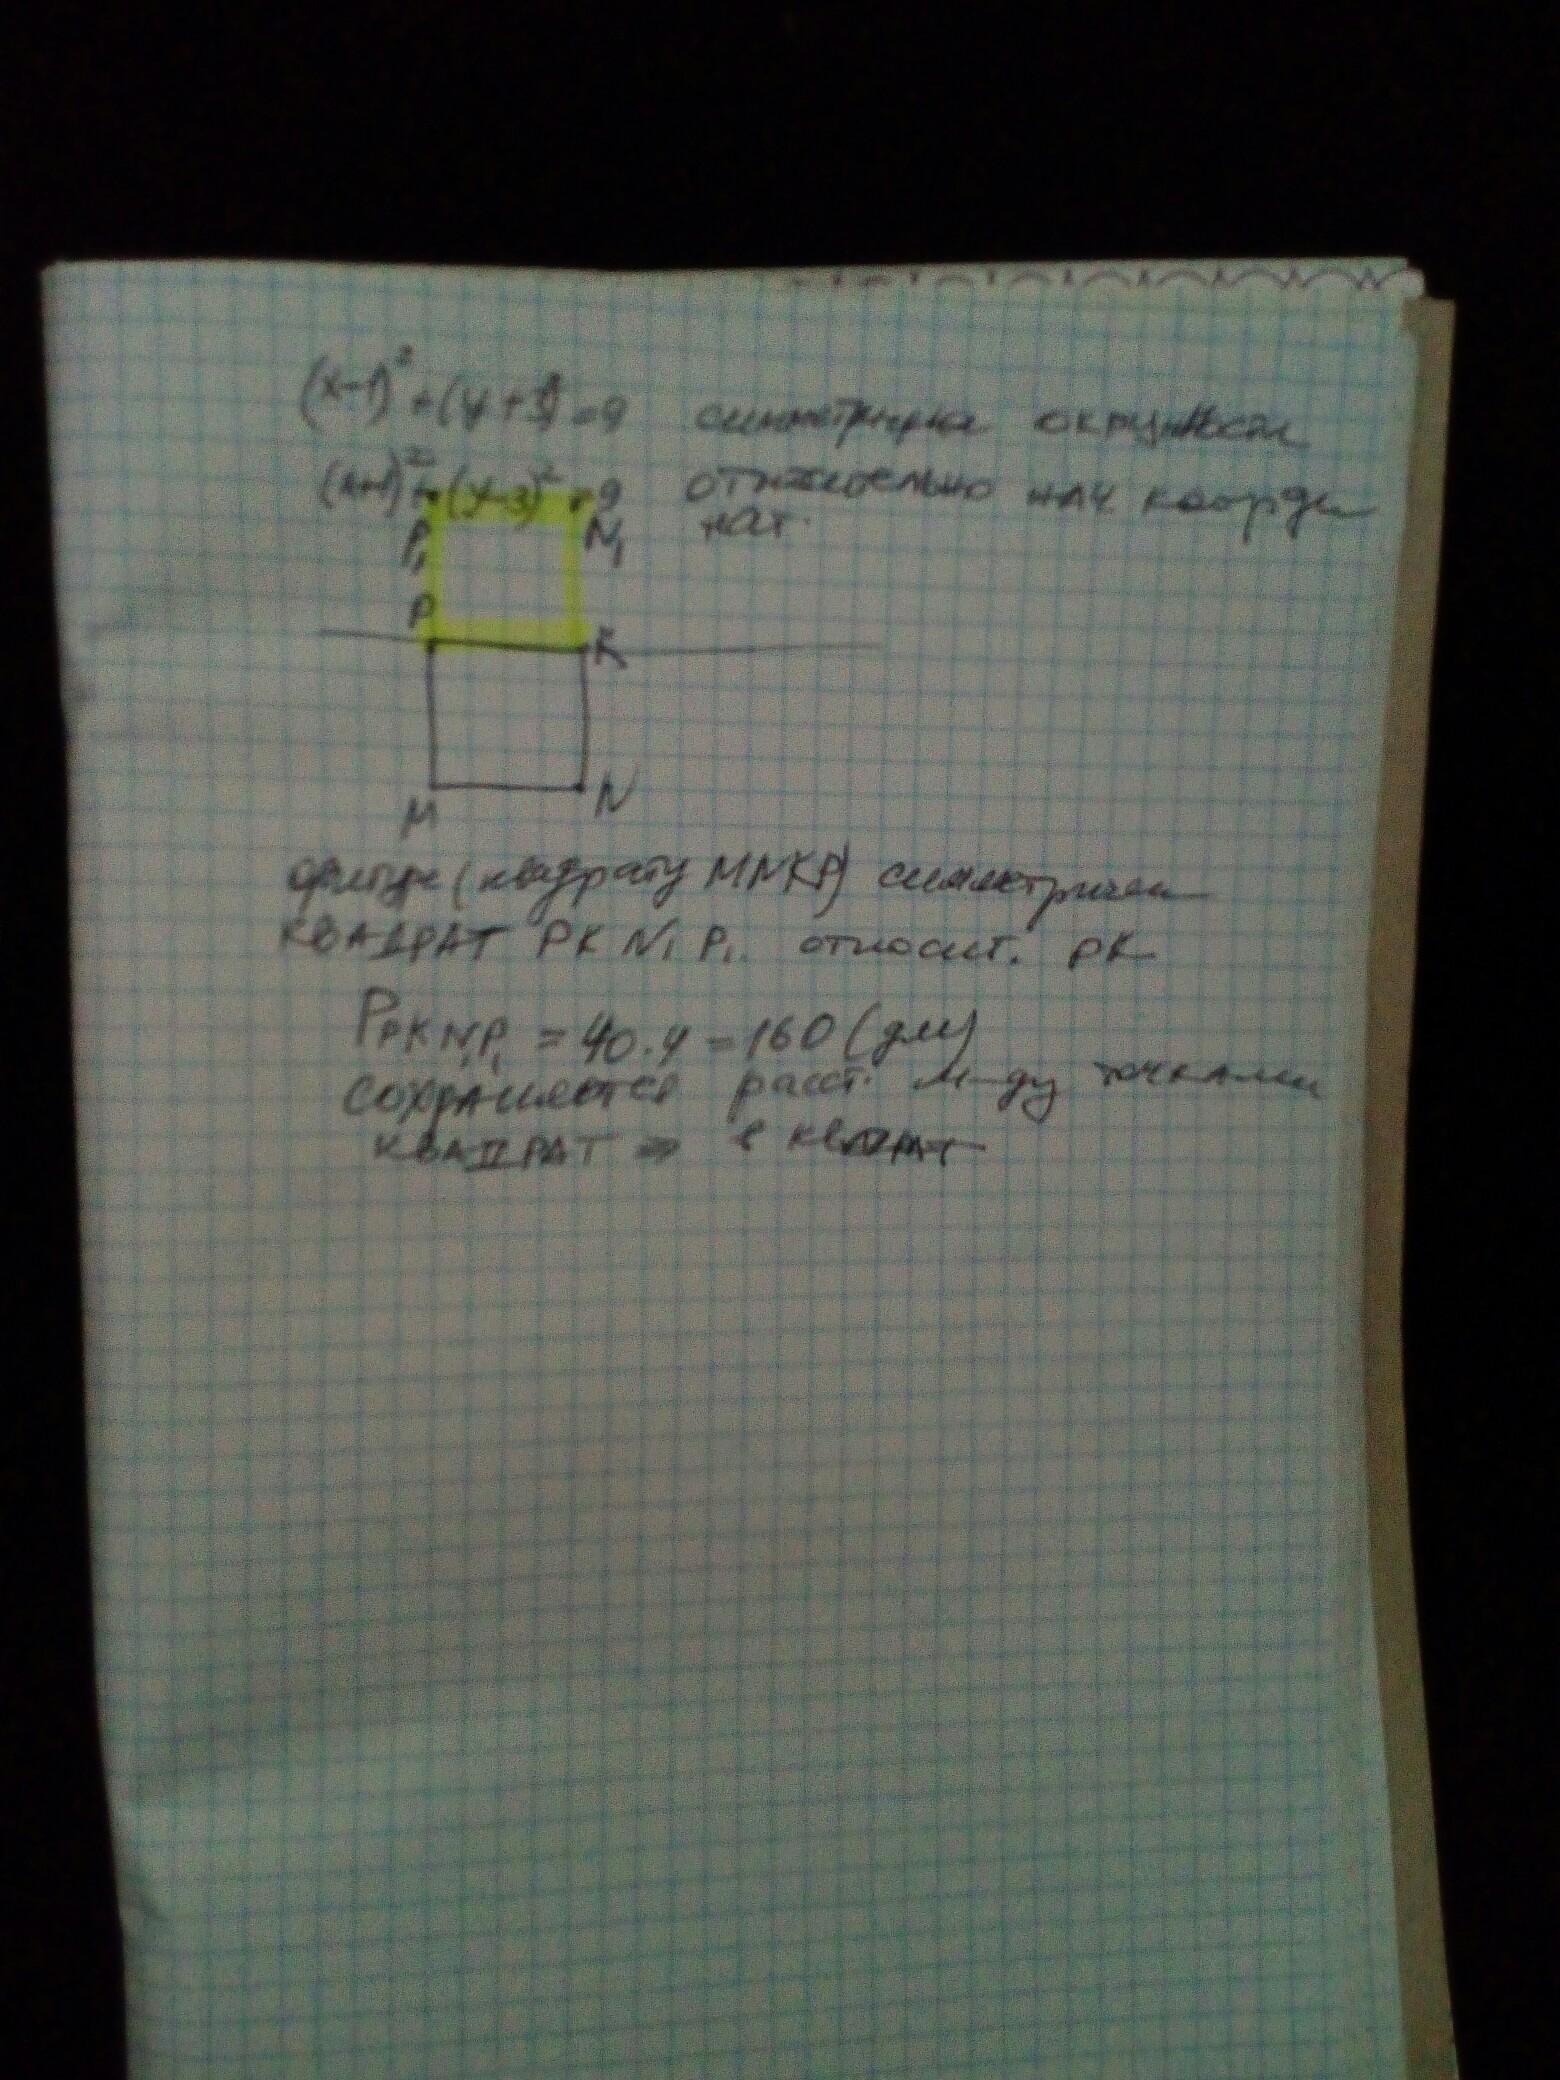 (x-1)² + (y+3)² = 9 симметрична окружности
(x+1)² + (y-3)² = 9 относительно нач. коорди
нат.
P₁ N₁
P
K
M N
фигуре (квадрату MNKP) симметричен
КВАДРАТ PKN₁P₁ относит. PK
P PKN₁P₁ = 40·4 = 160 (дм)
сохраняется расст. м-ду точками
КВАДРАТ ⇒ в КВАДРАТ